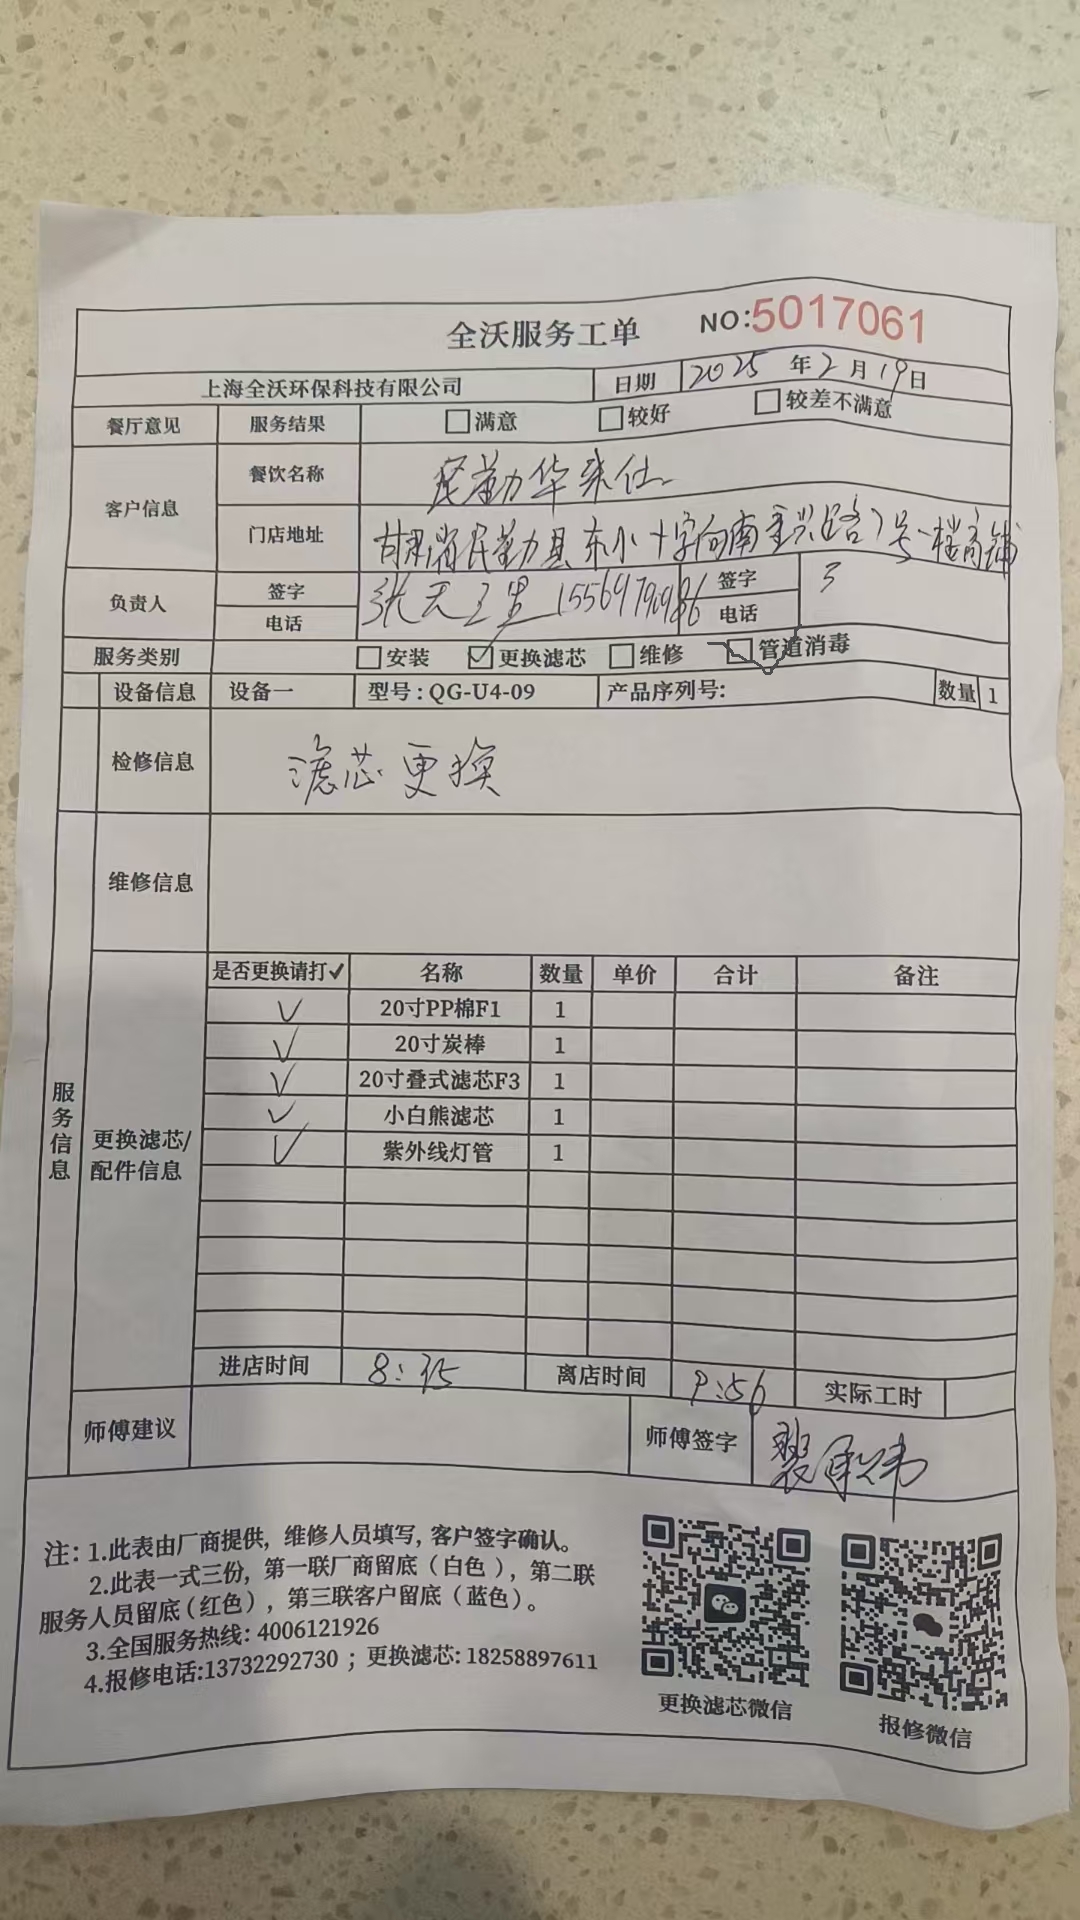 全沃服务工单 NO:5017061
上海全沃环保科技有限公司 日期 2025 年 2 月 19 日
餐厅意见 服务结果 满意 较好 较差不满意
客户信息 餐饮名称 民勤华莱仕
门店地址 甘肃省民勤县东小十字向南 路7号一楼商铺
负责人 签字 电话 张天 签字 电话 3
服务类别 安装 更换滤芯 维修 管道消毒
设备信息 设备一 型号: QG-U4-09 产品序列号: 数量 1
检修信息 滤芯更换
维修信息
服务信息
更换滤芯/
配件信息
是否更换请打✓ 名称 数量 单价 合计 备注
✓ 20寸PP棉F1 1
✓ 20寸炭棒 1
✓ 20寸叠式滤芯F3 1
✓ 小白熊滤芯 1
✓ 紫外线灯管 1
进店时间 8: 离店时间 9:56 实际工时
师傅建议 师傅签字
注: 1.此表由厂商提供, 维修人员填写, 客户签字确认。
2.此表一式三份, 第一联厂商留底 ( 白色 ) , 第二联
服务人员留底 ( 红色 ) , 第三联客户留底 ( 蓝色 ) 。
3.全国服务热线: 4006121926
4.报修电话:13732292730 ; 更换滤芯: 18258897611
更换滤芯微信
报修微信